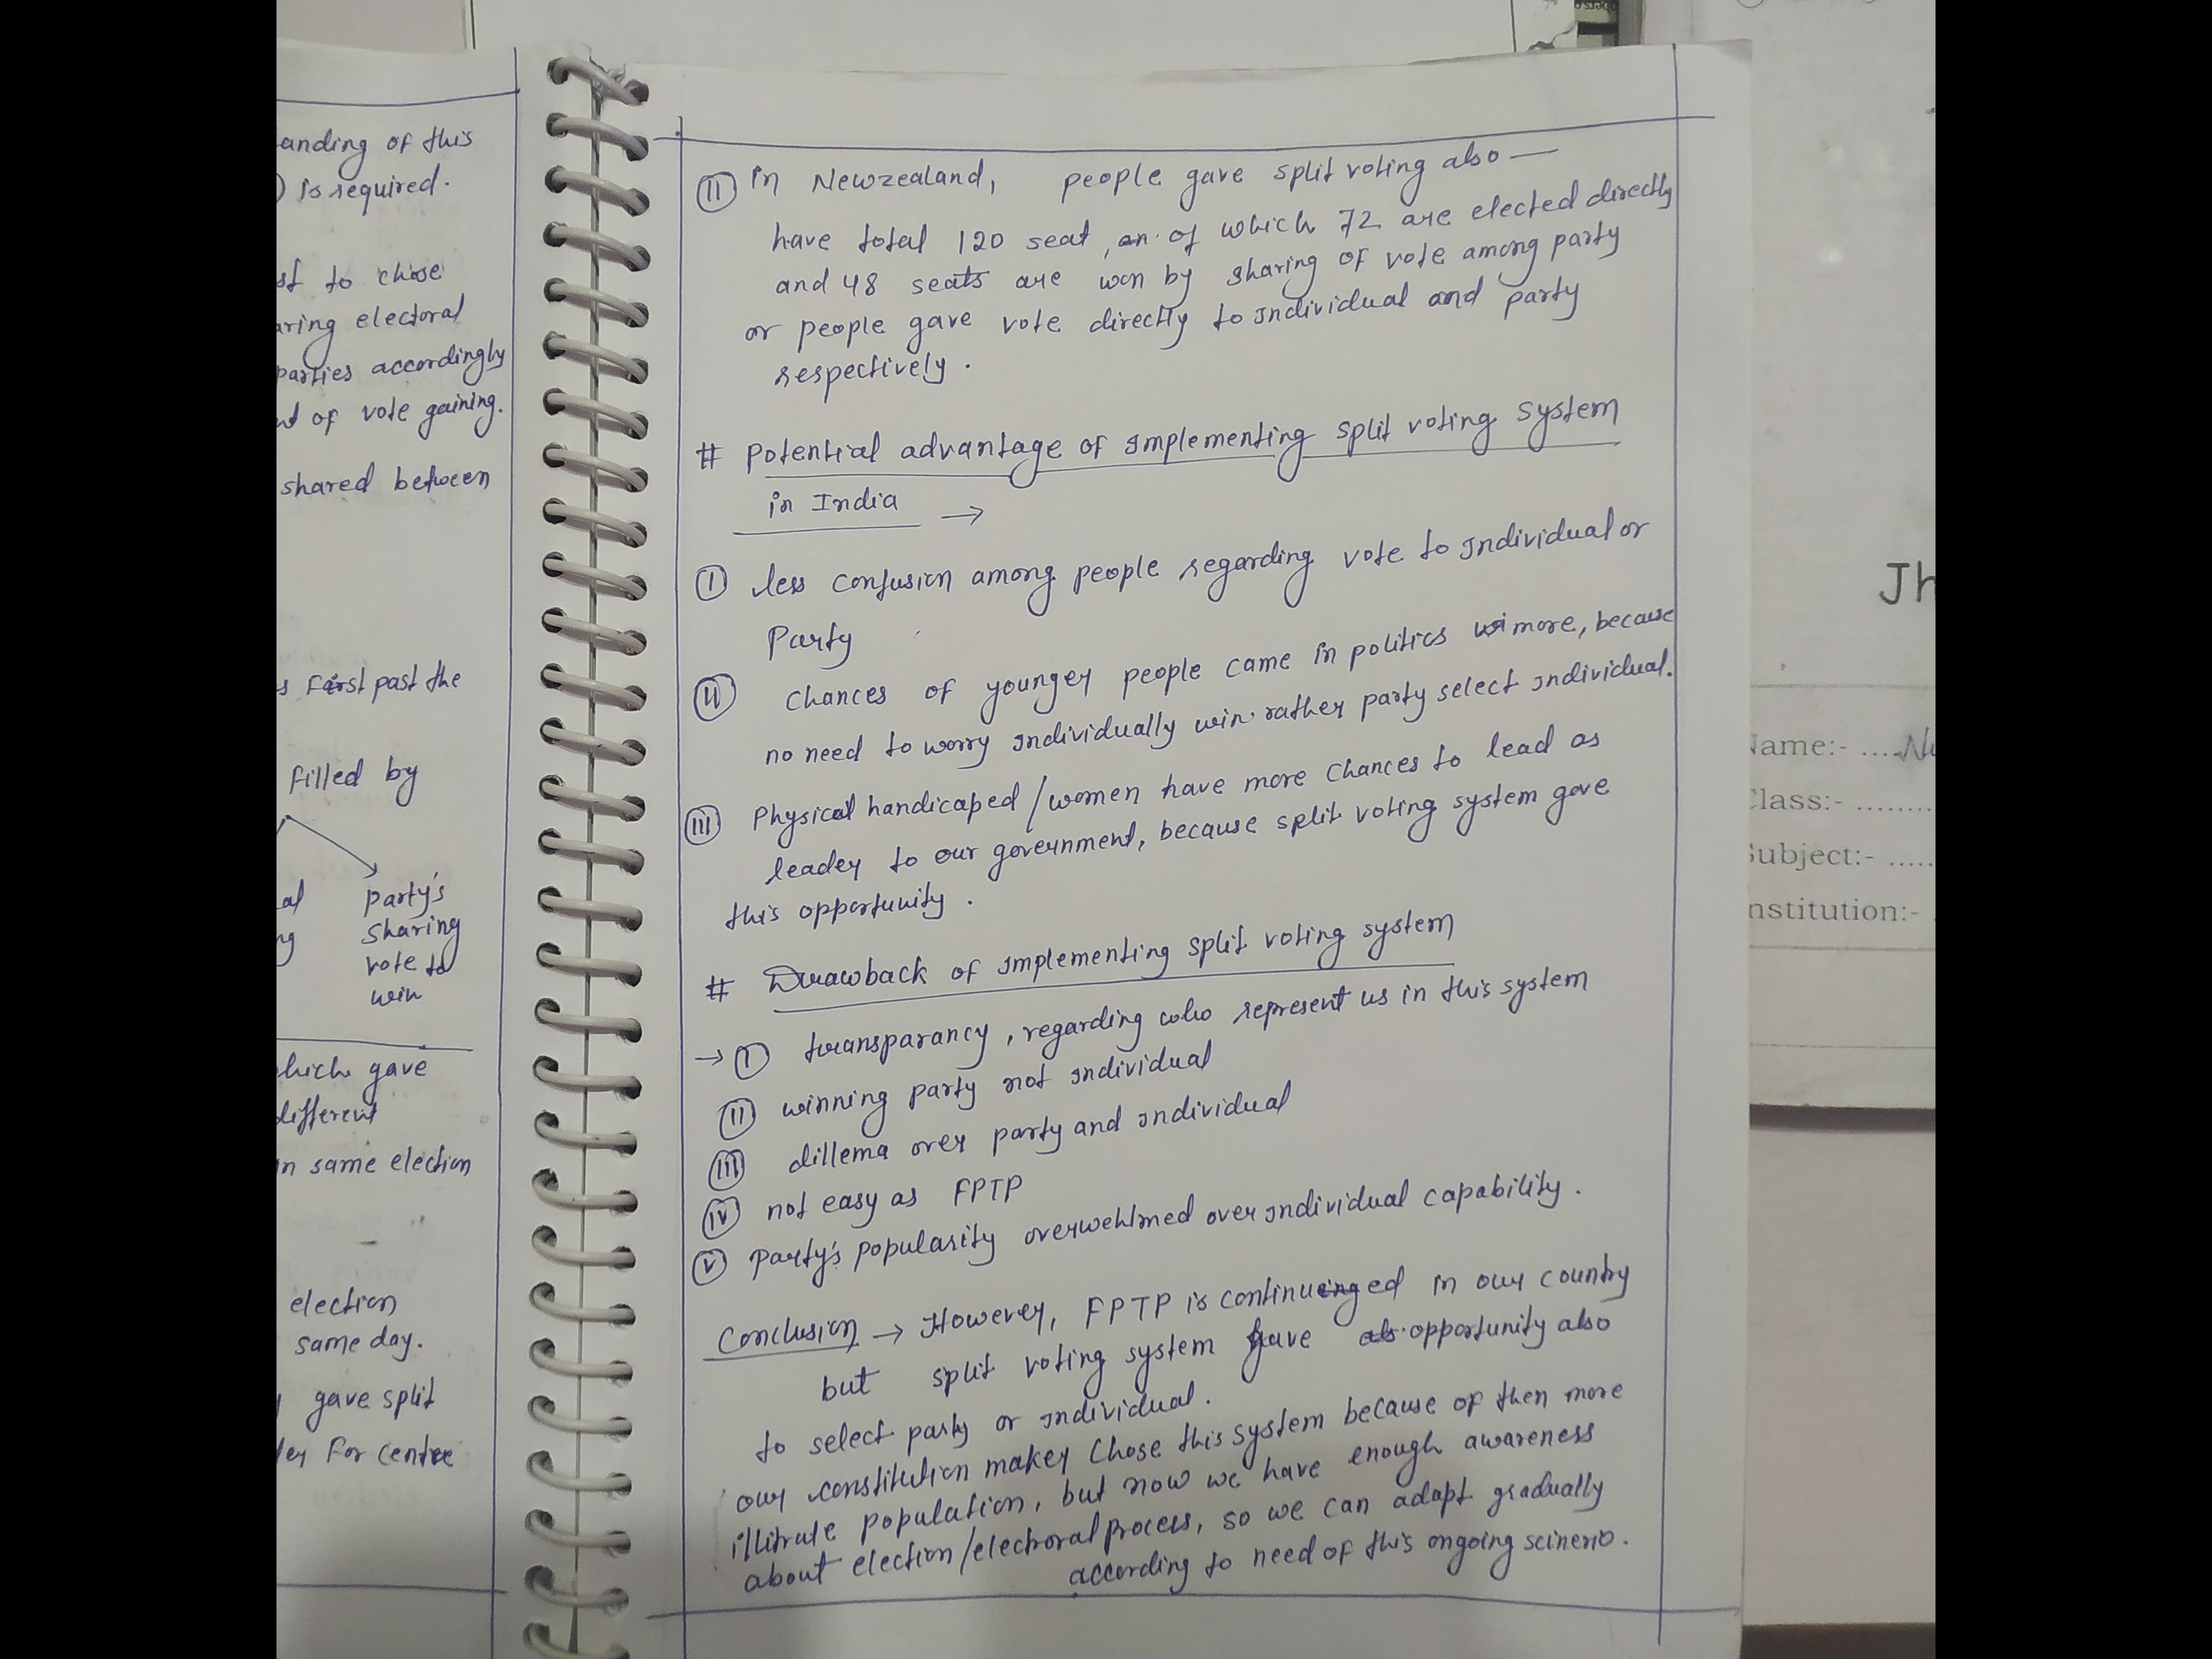 anding of this
) is required.
st to chose
aring electoral
parties accordingly
nt of vote gaining.
shared between
s first past the
filled by
al
ng
party's
sharing
vote to
win
which gave
different
in same election
election
same day.
gave split
ler for centre
II in Newzealand, people gave split voting also —
have total 120 seat, of which 72 are elected directly
and 48 seats are won by sharing of vote among party
or people gave vote directly to individual and party
respectively.
# Potential advantage of implementing split voting system
in India →
I less confusion among people regarding vote to individual or
Party
II Chances of younger people came in politics more, because
no need to worry individually win rather party select individual.
III Physical handicaped/women have more chances to lead as
leader to our government, because split voting system gave
this opportunity.
# Drawback of implementing split voting system
→ I transparancy, regarding who represent us in this system
II winning party not individual
III dillema over party and individual
IV not easy as FPTP
V Party's popularity overwehlmed over individual capability.
Conclusion → However, FPTP is continued in our country
but split voting system gave opportunity also
to select party or individual.
our constitution maker chose this system because of then more
illitrate population, but now we have enough awareness
about election/electroral process, so we can adapt gradually
according to need of this ongoing scinerio.
Jh
Name:- ....Nu
Class:- ........
Subject:- .....
Institution:- .